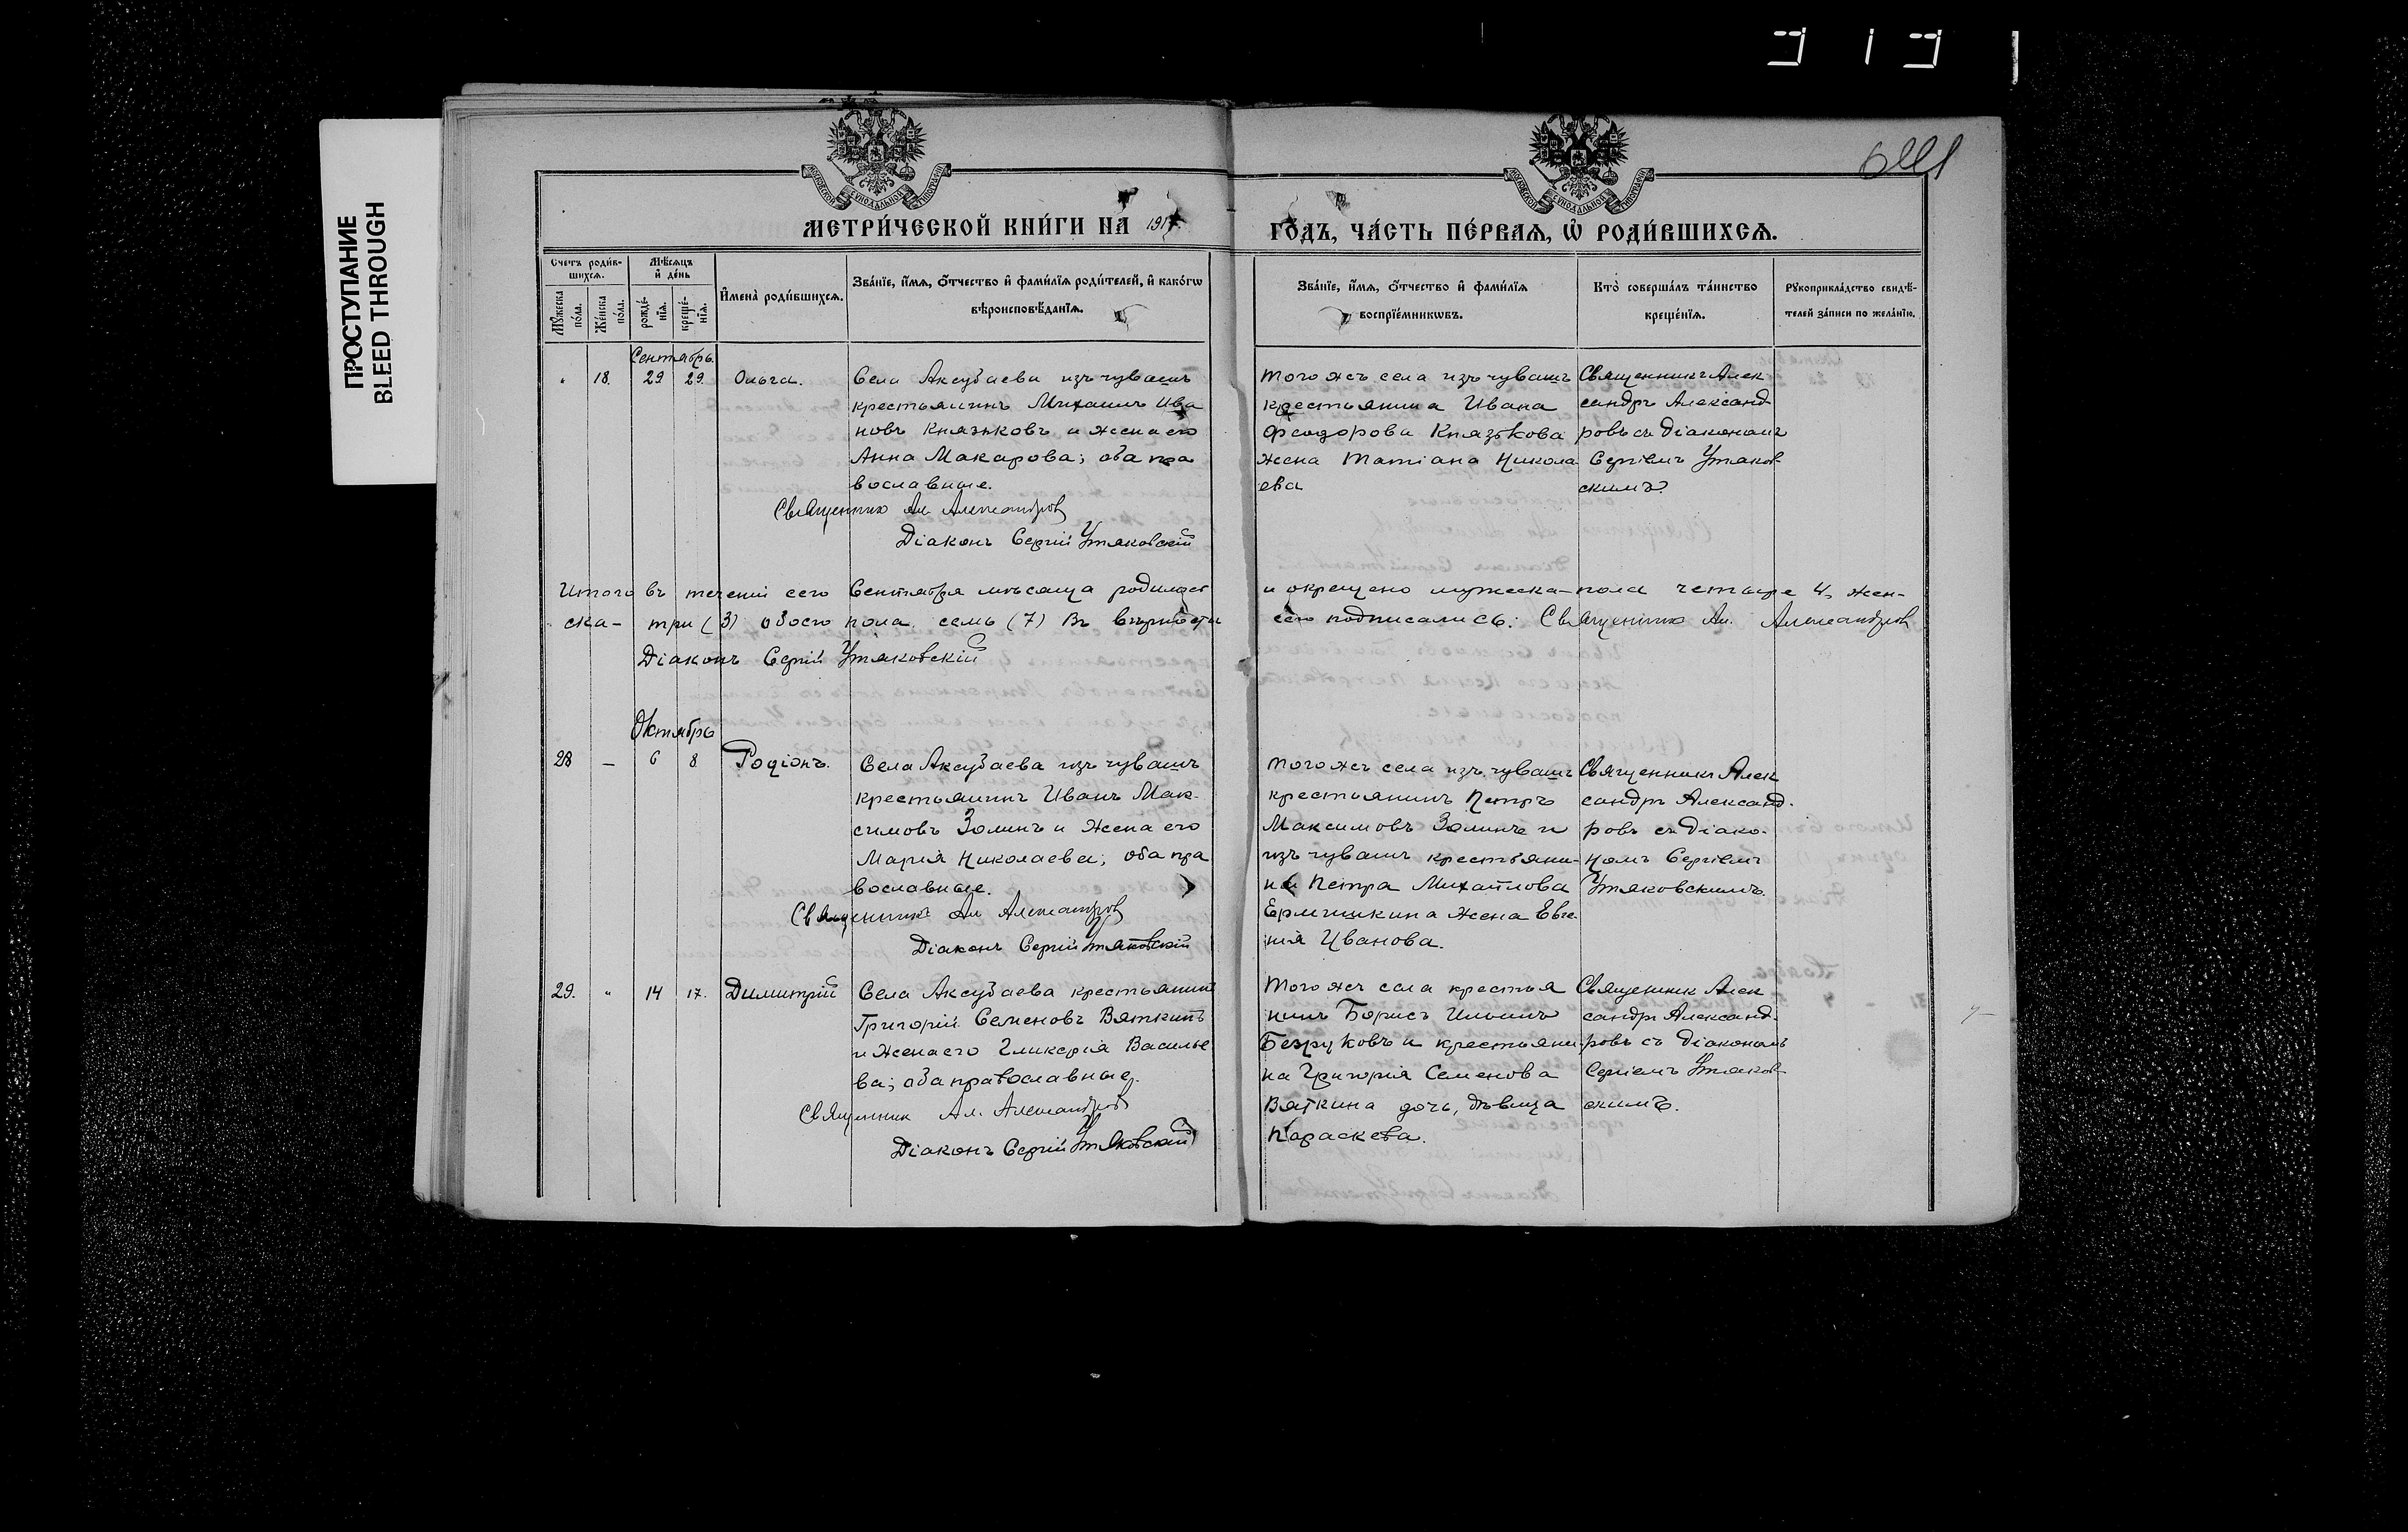 ПРОСТУПАНИЕ
BLEED THROUGH
МЕТРИ́ЧЕСКОЙ КНИ́ГИ НА 1917
ГО́ДЪ, ЧА́СТЬ ПЕ́РВАЯ, Ѡ҆ РОДИ́ВШИХСЯ.
Счетъ роди́вшихся.
Мꙋ́жеска по́ла.
Же́нска по́ла.
Мѣ́сяцъ и҆ де́нь
рожде́нїя.
креще́нїя.
И҆мена̀ роди́вшихся.
Зва́нїе, и҆́мя, ѻ҆́тчество и҆ фами́лїя роди́телей, и҆ како́гѡ
вѣроисповѣ́данїя.
Зва́нїе, и҆́мя, ѻ҆́тчество и҆ фами́лїя
воспрїе́мникѡвъ.
Кто̀ соверша́лъ та́инство
креще́нїя.
Рꙋкоприкла́дство свидѣ́-
телей за́писи по жела́нїю.
Сентябрь.
" 18. 29 29. Ольга.
Села Аксубаева изъ чувашъ
крестьянинъ Михаилъ Ива
новъ Князьковъ и жена его
Анна Макарова; оба пра
вославные.
Священникъ Ал. Александров
Діаконъ Сергій Утяковскій
того жъ села изъ чувашъ
крестьянина Ивана
Феодорова Князькова
жена Татіана Никола
ева
Священникъ Алек
сандръ Александ-
ровъ съ діакономъ
Сергіемъ Утяков-
скимъ.
Итого въ теченіи сего Сентября мѣсяца родилось и окрещено мужеска-пола четыре 4, жен-
ска- три (3) обоего пола семь (7) Въ вѣрности сего подписались: Священникъ Ал. Александров
Діаконъ Сергій Утяковскій
Октябрь
28 — 6 8 Родіонъ.
Села Аксубаева изъ чувашъ
крестьянинъ Иванъ Мак-
симовъ Золинъ и жена его
Марія Николаева; оба пра
вославные.
Священникъ Ал Александров
Діаконъ Сергій Утяковскій
того жъ села изъ чувашъ
крестьянинъ Петръ
Максимовъ Золинъ и
изъ чувашъ крестьяни-
на Петра Михайлова
Ермишкина жена Евге
нія Иванова.
Священникъ Алек
сандръ Александ-
ровъ съ діако-
номъ Сергіемъ
Утяковскимъ.
29. " 14 17. Димитрій
Села Аксубаева крестьянинъ
Григорій Семеновъ Вяткинъ
и жена его Гликерія Василье
ва; оба православные.
Священник Ал. Александров
Діаконъ Сергій Утяковскій
того жъ села крестья
нинъ Борисъ Ильинъ
Безруковъ и крестьяни-
на Григорія Семенова
Вяткина дочь, дѣвица
Параскева.
Священник Алек
сандръ Александ-
ровъ съ діакономъ
Сергіемъ Утяков-
скимъ.